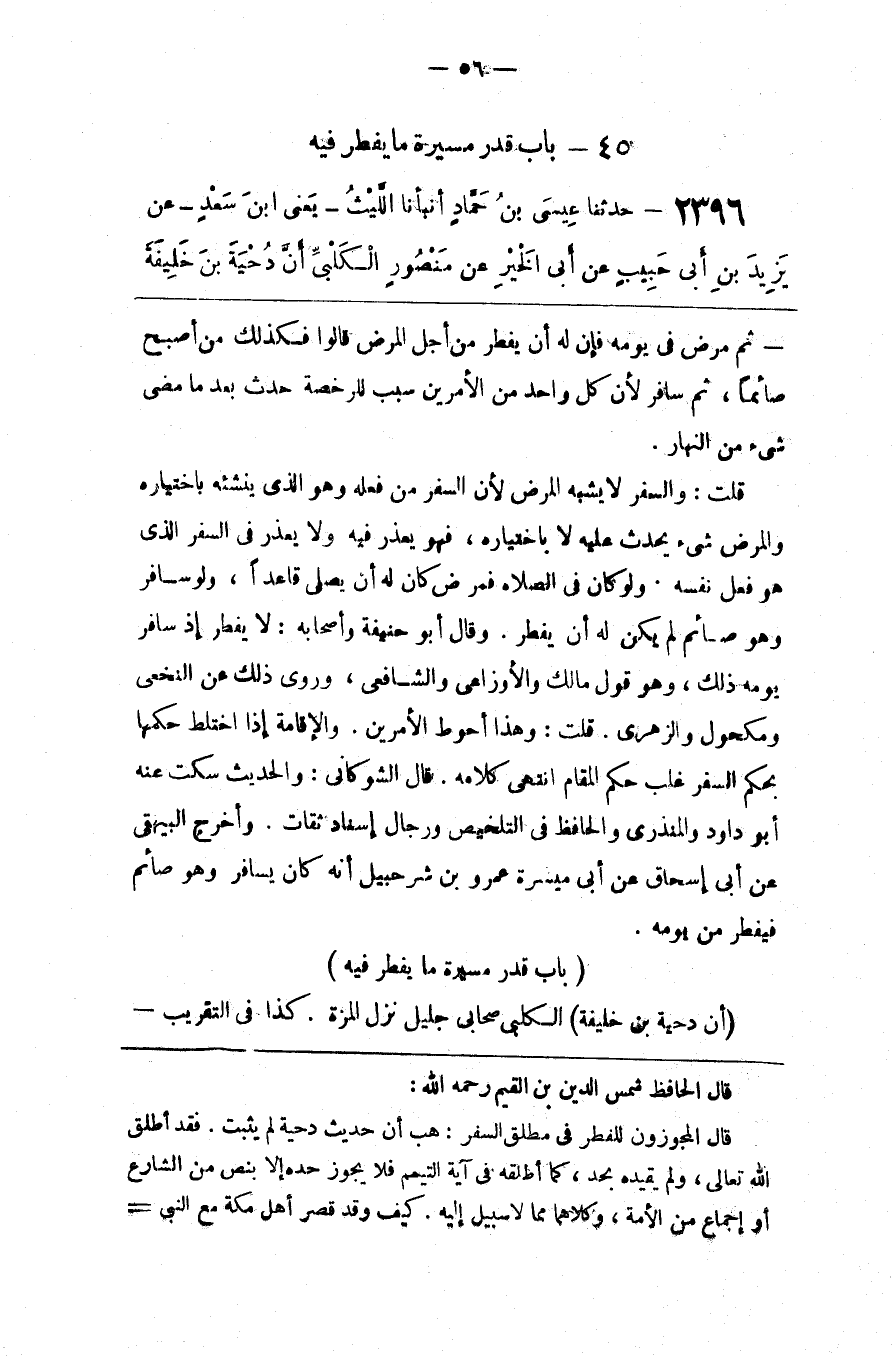 — ٥٦ —
٤٥ — باب قدر مسيرة ما يفطر فيه
٢٣٩٦ — حدثنا عِيسَى بنُ حَمَّادٍ أنبأنا اللَّيْثُ ـ يَعنى ابنَ سَعْدٍ ـ عن
يَزِيدَ بنِ أَبى حَبِيبٍ عن أَبى الخَيْرِ عن مَنْصُورٍ الْـكَلْبىِّ أَنَّ دُحْيَةَ بنَ خَلِيفَةَ
— ثم مرض فى يومه فإن له أن يفطر من أجل المرض قالوا فـكذلك من أصبح
صائماً ، ثم سافر لأن كل واحد من الأمرين سبب للرخصة حدث بعد ما مضى
شىء من النهار .
قلت : والسفر لا يشبه المرض لأن السفر من فعله وهو الذى ينشئه باختياره
والمرض شىء يحدث عليه لا باختياره ، فهو يعذر فيه ولا يعذر فى السفر الذى
هو فعل نفسه . ولو كان فى الصلاه فمرض كان له أن يصلى قاعداً ، ولو سـافر
وهو صـائم لم يكن له أن يفطر . وقال أبو حنيفة وأصحابه : لا يفطر إذ سافر
يومه ذلك ، وهو قول مالك والأوزاعى والشـافعى ، وروى ذلك عن النخعى
ومكحول والزهرى . قلت : وهذا أحوط الأمرين . والإقامة إذا اختلط حكمها
بحكم السفر غلب حكم المقام انتهى كلامه . قال الشوكانى : والحديث سكت عنه
أبو داود والمنذرى والحافظ فى التلخيص ورجال إسناد ثقات . وأخرج البيهقى
عن أبى إسحاق عن أبى ميسرة عمرو بن شرحبيل أنه كان يسافر وهو صائم
فيفطر من يومه .
( باب قدر مسيرة ما يفطر فيه )
(أن دحية بن خليفة) الـكلبى صحابى جليل نزل المزة . كذا فى التقريب —
قال الحافظ شمس الدين بن القيم رحمه الله :
قال المجوزون للفطر فى مطلق السفر : هب أن حديث دحية لم يثبت . فقد أطلق
الله تعالى ، ولم يقيده بحد ، كما أطلقه فى آية التيمم فلا يجوز حده إلا بنص من الشارع
أو إجماع من الأمة ، وكلاهما مما لا سبيل إليه . كيف وقد قصر أهل مكة مع النبي =